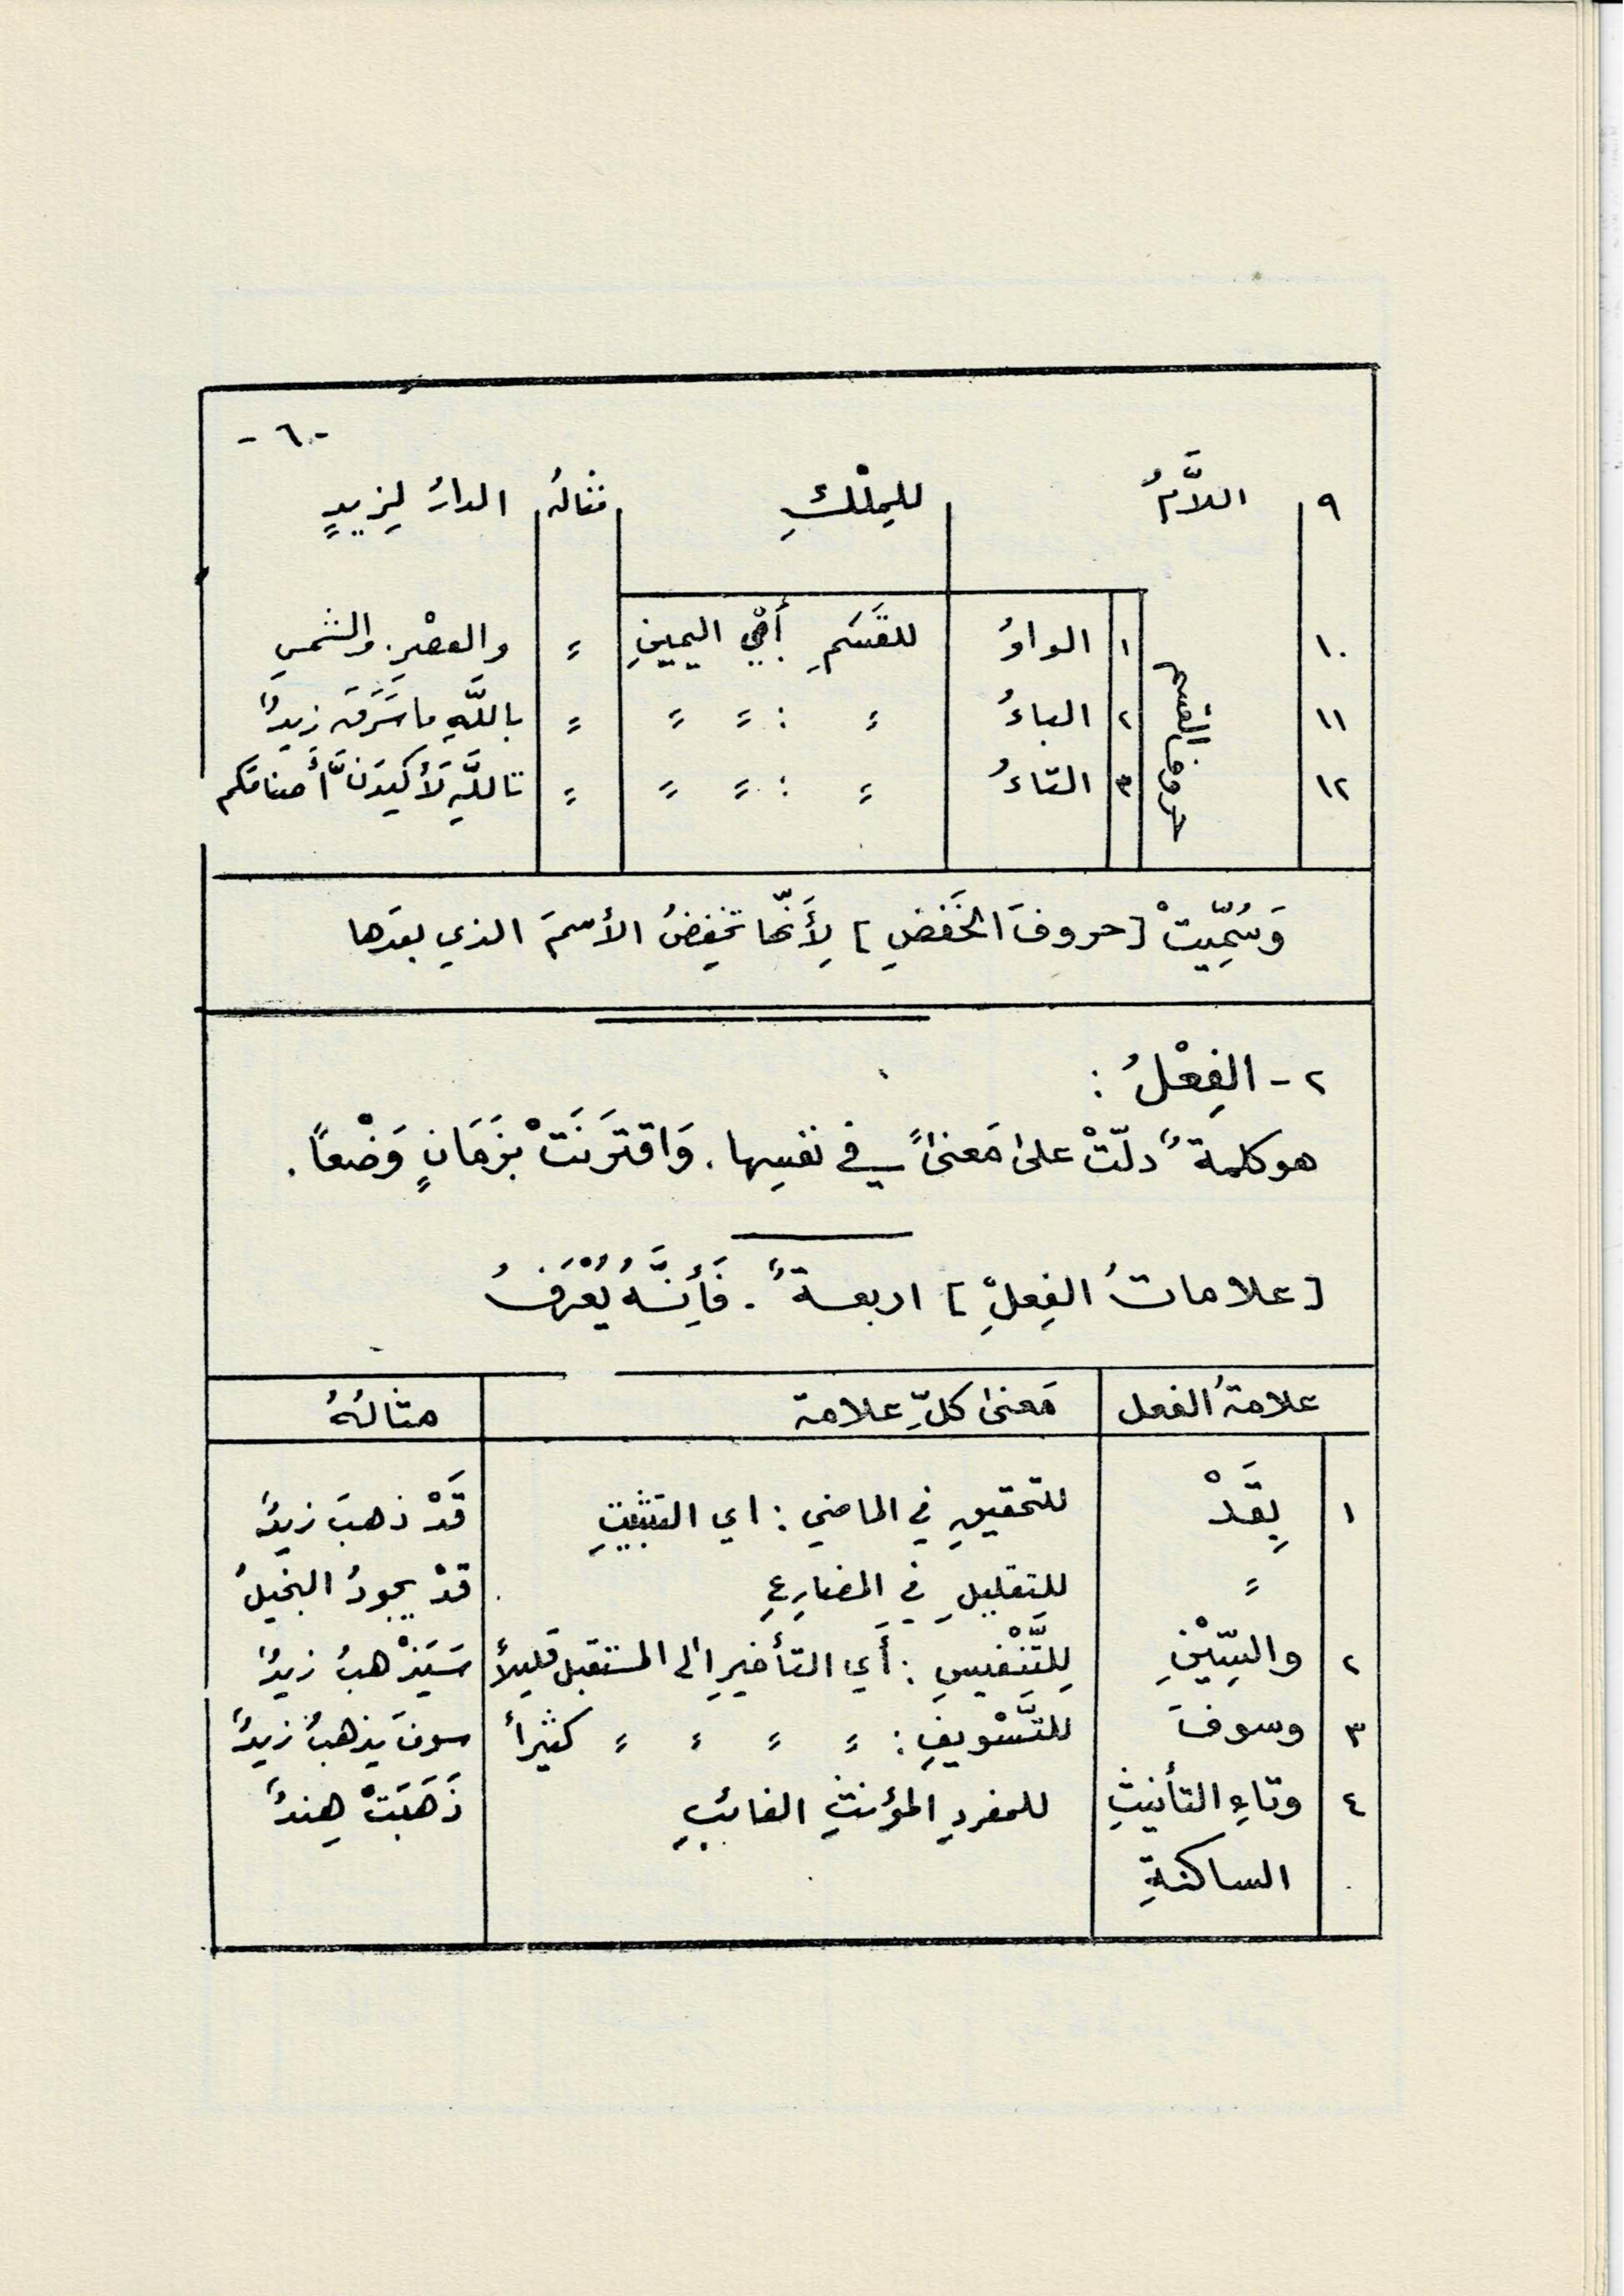 - ٦ -
٩ اللَّامُ للمِلْكِ مثالهُ الدارُ لِزيدٍ
حروف القسم
١٠ ١ الواوُ للقَسَمِ أَيْ اليمينِ = والعصْرِ. والشمسِ
١١ ٢ الباءُ = : = = = باللَّهِ ما سَرَقَ زيدٌ
١٢ ٣ التاءُ = : = = = تاللَّهِ لَأَكيدَنَّ أَصنامَكم
وَسُمِّيتْ [حروفَ الخَفضِ] لِأَنَّها تخفِضُ الأسمَ الذي بعدَها
٢ - الفِعْلُ :
هو كلمةٌ دلّتْ على مَعنىً في نفسِها. وَاقترَنَتْ بزَمَانٍ وَضْعاً.
[علاماتُ الفِعلِ] اربعةٌ. فَأِنَّهُ يُعْرَفُ
علامةُ الفعل مَعنى كلِّ علامة مثالُهُ
١ بِقَدْ للتحقيقِ في الماضي : اي التثبيتِ قَدْ ذهبَ زيدٌ
= للتقليلِ في المضارِعِ قدْ يجودُ البخيلُ
٢ والسِّيْنِ لِلتَّنْفيسِ : أَي التأخيرِ الى المستقبل قليلاً سَيَذْهبُ زيدٌ
٣ وسوفَ للتَّسْويفِ : = = = = كثيراً سوفَ يذهبُ زيدٌ
٤ وتاءِ التأنيثِ للمفردِ المؤنثِ الغائبِ ذَهَبَتْ هِندٌ
الساكنةِ